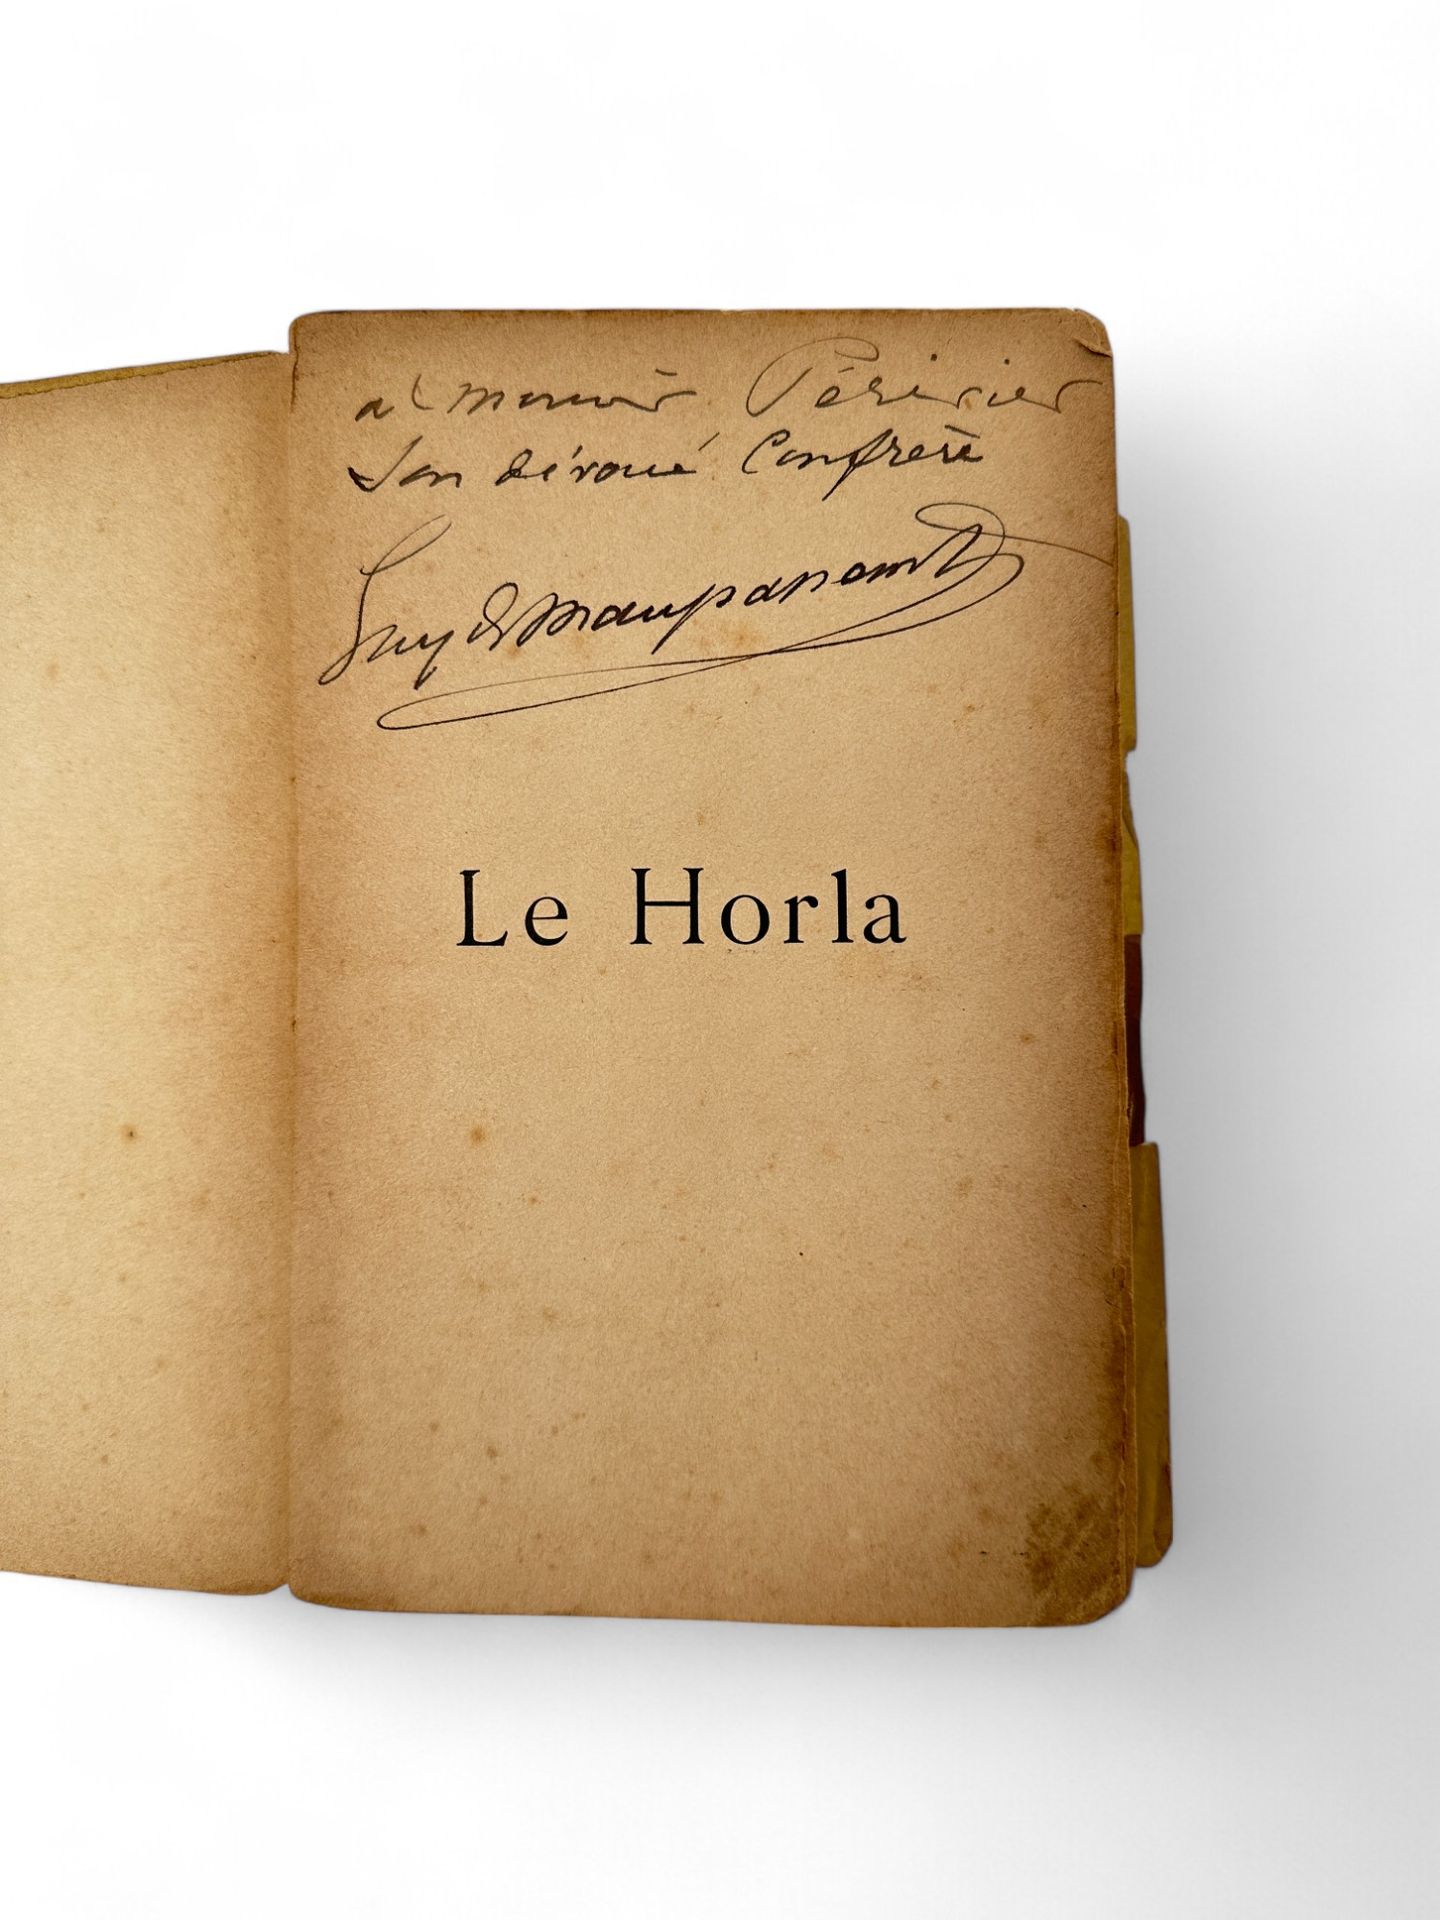 a Monsieur Périvier
Son dévoué Confrère
Guy de Maupassant
Le Horla